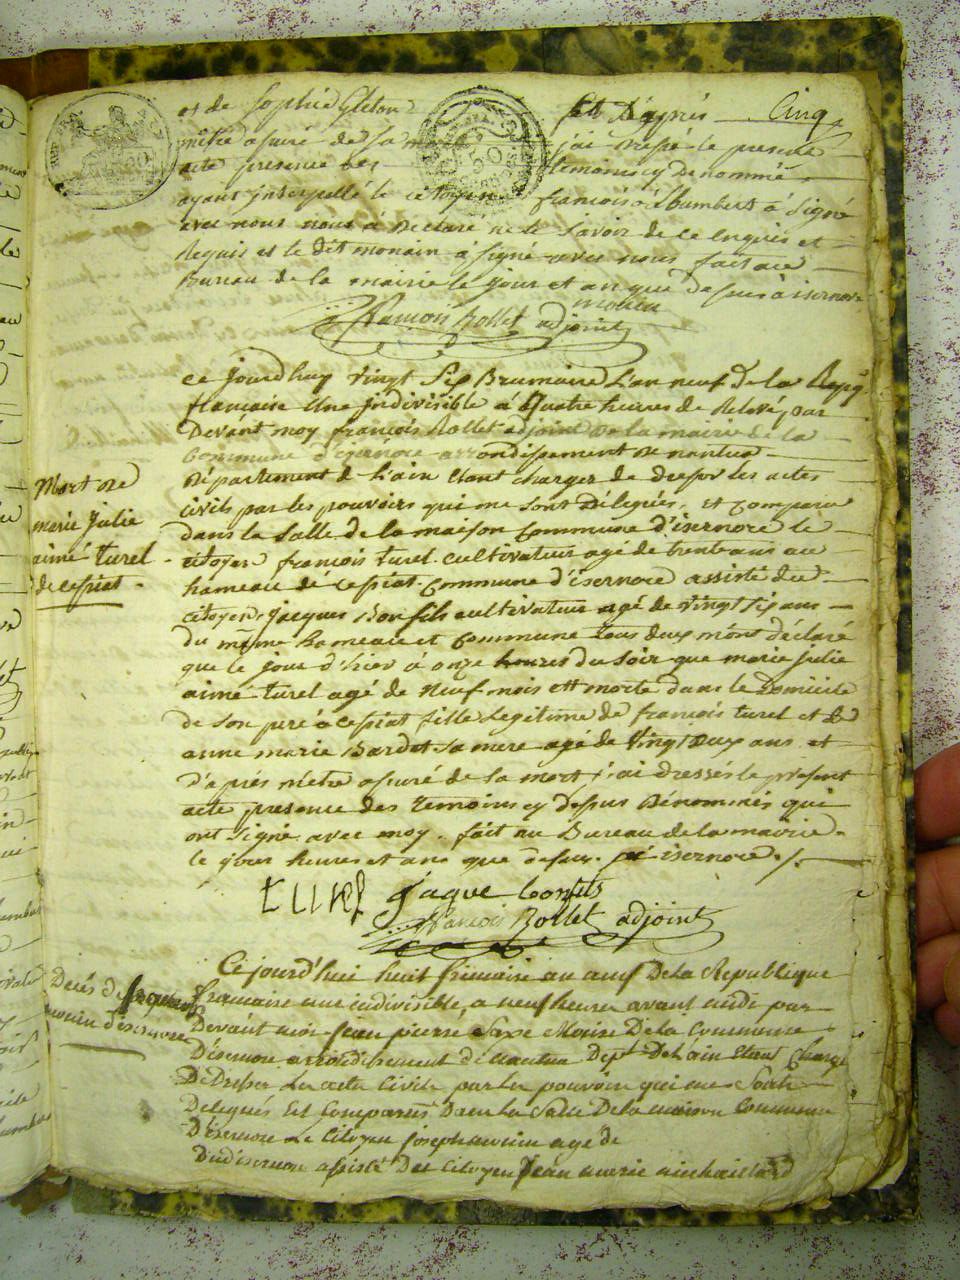 et de Sophie Gleton et D'après Cinq
mêtre assuré de sa mort j'ai dressé le présent
acte presence des temoins cy denommé
ayant interpellé le citoyen françois humbert à Signé
avec nous nous à declaré ne le Savoir de ce enquis et
Requis et le dit monain à Signé avec nous fait au
Bureau de la mairie le jour et an que dessus à isernore
monin
françois Rollet adjoint
ce jourdhuy vingt Six Brumaire L'an neuf de la Repq
francaise Une Jndivisible à Quatre heures de Relevé, par
Devant moy françois Rollet adjoint de la mairie de la
Commune d'isernore arrondissement de nantua
Département de L'ain Etant charger de dresser les actes
civils par les pouvoirs qui me sont Délegués, et comparu
dans la Salle de la maison Commune d'isernore le
citoyen françois turel cultivateur agé de trente ans au
hameau de cessiat Commune d'isernore assisté du
citoyen Jacques Bonfils cultivateur agé de vingt six ans
du même hameau et Commune tous deux m'ont déclaré
que le jour d'hier à onze heures du Soir que marie julie
aimé turel agé de Neuf mois est morte dans le Domicile
de Son peré à cessiat fille Legitime de françois turel et de
anne marie Bardet sa mere agé de Vingt deux ans et
D'après m'etre assuré de la mort j'ai dressés le présent
acte presence des temoins cy dessus Dénommés qui
ont signé avec moy. fait au Bureau de la mairie.
le jour heures et ans que dessus à isernore ./.
Mort de
marie Julie
aimé turel
de cessiat
turel jaque bonfils
françois Rollet adjoint
Ce jourd'hui huit frimaire an neuf De La République
francaise une indivisible, a neuf heures avant midi par
Devant moi Jean pierre Maire De la Commune
D'isernore arrondissement de Nantua Dept De L'ain Etant Chargé
De Dresser Les acte Civils par Les pouvoirs qui me Sont
Delegués Est Comparus Dans La Salle De la maison Commune
D'isernore Le Citoyen joseph agé de
Dudisernore assisté Des Citoyen Jean marie
Décès de
monin d'isernore